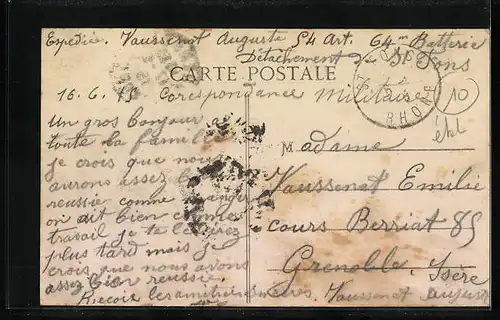 Expédié. Vaussenat Auguste 54 Art. 64m Batterie
Détachement de St Fons
CARTE POSTALE
16.6.15 Corespondance Militaire
RHONE
10
un gros bonjour
toute la famille
je crois que nous
aurons assez bien
reussie comme
on dit bien comme
travail je te le
plus tard mais je
crois que nous avons
assez bien reussie.
Recois les amities
Vaussenat Auguste
M adame
Vaussenat Emilie
cours Berriat 85
Grenoble, Isère